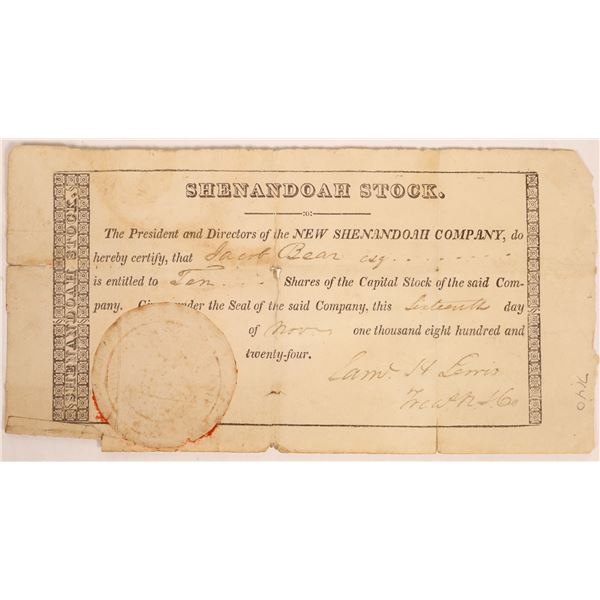 SHENANDOAH STOCK.
SHENANDOAH STOCK.
The President and Directors of the NEW SHENANDOAH COMPANY, do
hereby certify, that Jacob Bear esq . . . . . . . .
is entitled to Ten . . . Shares of the Capital Stock of the said Com-
pany. under the Seal of the said Company, this Sixteenth day
of Novr one thousand eight hundred and
twenty-four.
Saml. H Lewis